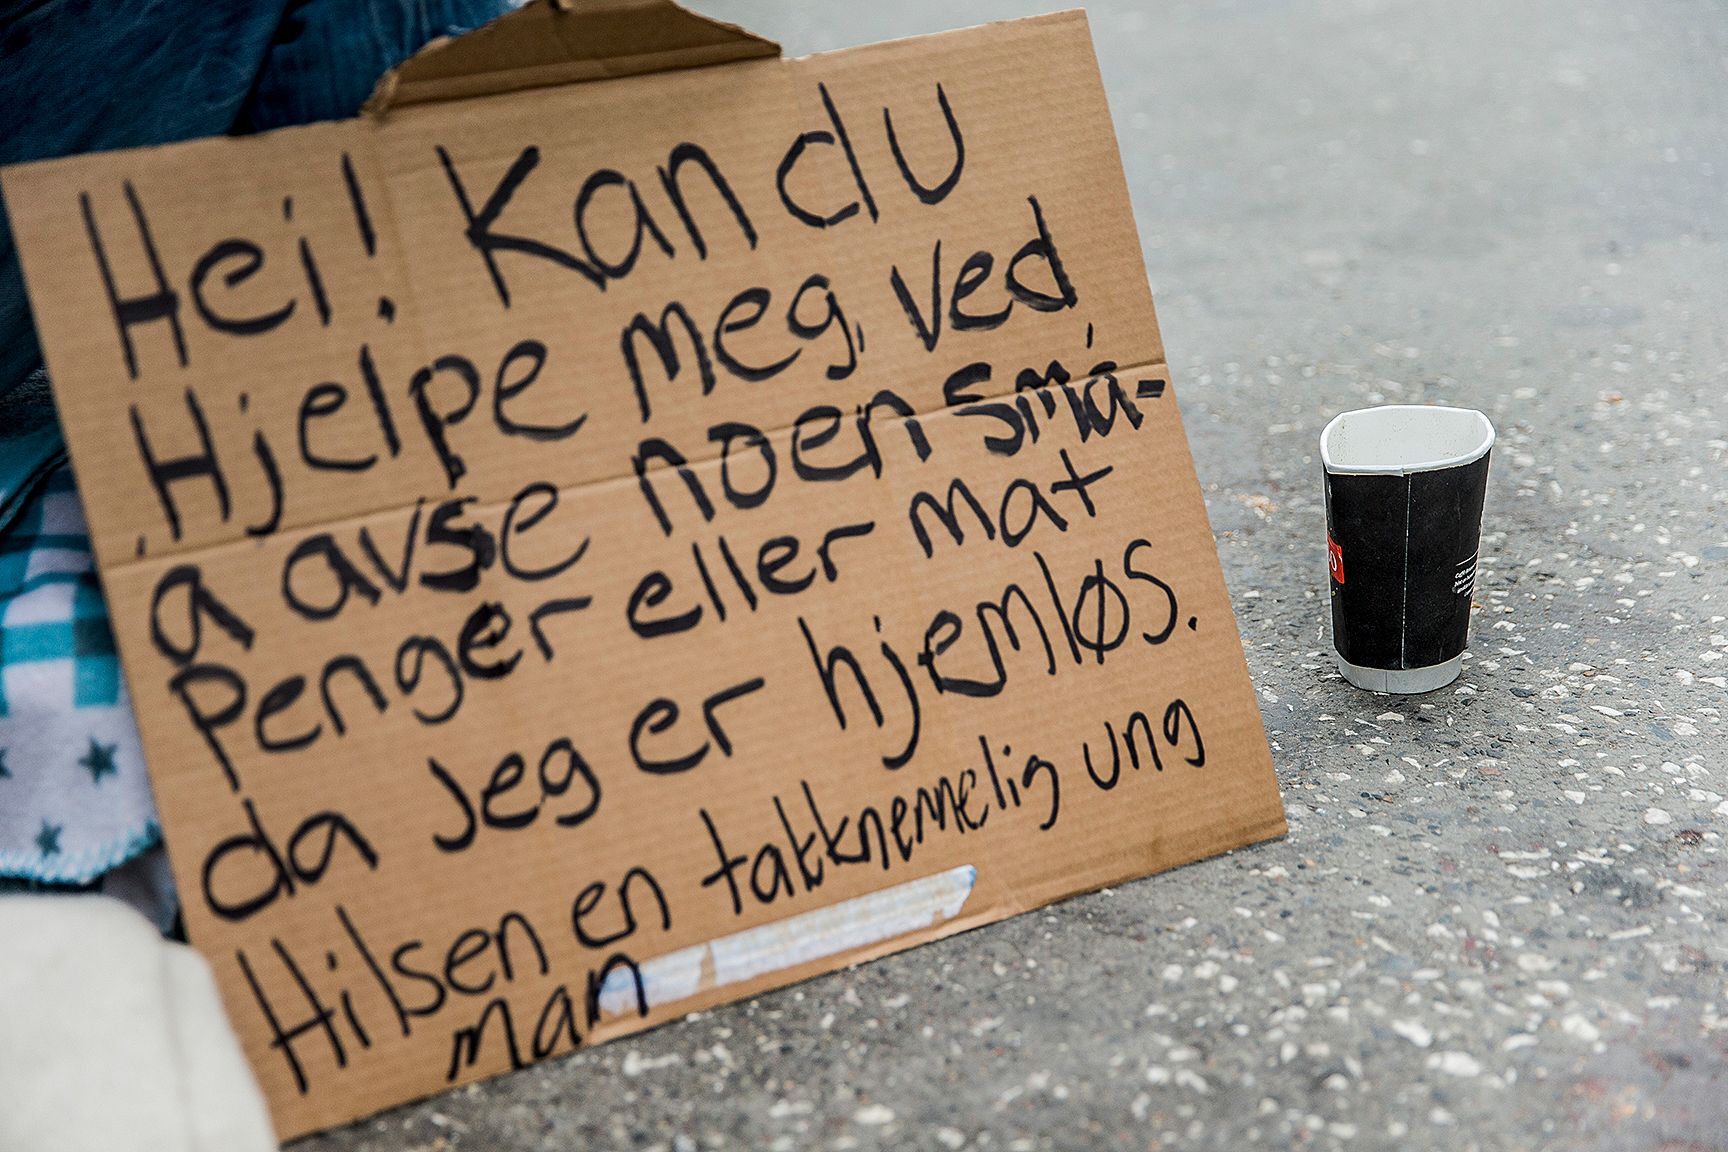 Hei! Kan du
Hjelpe meg, ved
å avse noen små-
Penger eller mat
da Jeg er hjemløs.
Hilsen en takknemmelig ung
man